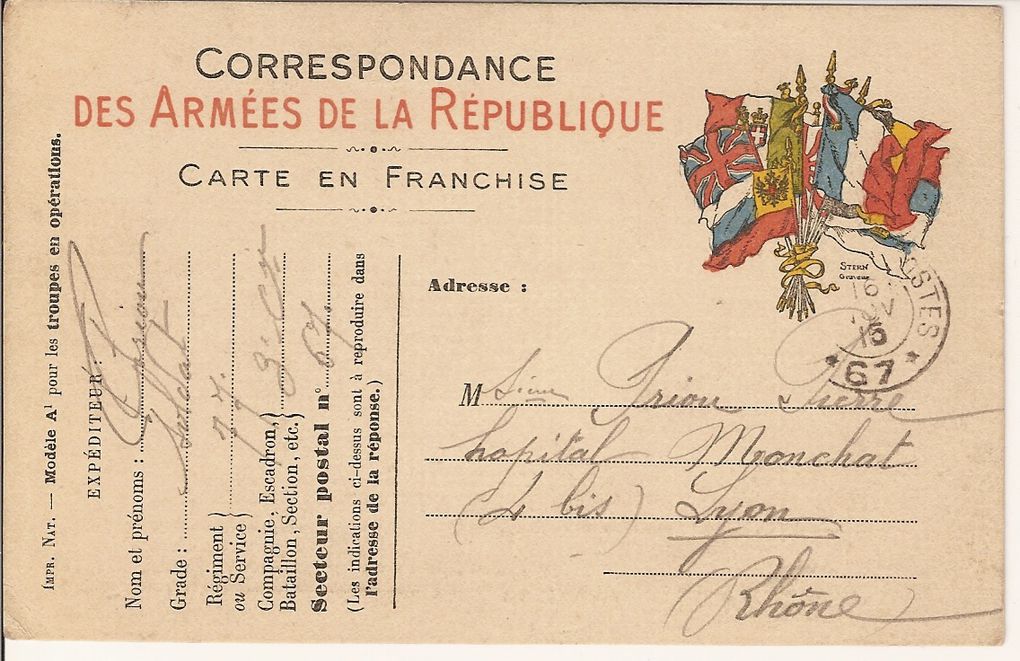 CORRESPONDANCE
DES ARMÉES DE LA RÉPUBLIQUE
CARTE EN FRANCHISE
STERN
Graveur
POSTES
16
15
* 67 *
Adresse :
M Prion Pierre
hopital Monchat
(4 bis) Lyon
Rhône
IMPR. NAT. — Modèle A¹ pour les troupes en opérations.
EXPÉDITEUR :
Nom et prénoms : Prion
Grade : Soldat
Régiment
ou Service }
Compagnie, Escadron,
Bataillon, Section, etc. } 3e Cie
Secteur postal n° 67
(Les indications ci-dessus sont à reproduire dans
l'adresse de la réponse.)